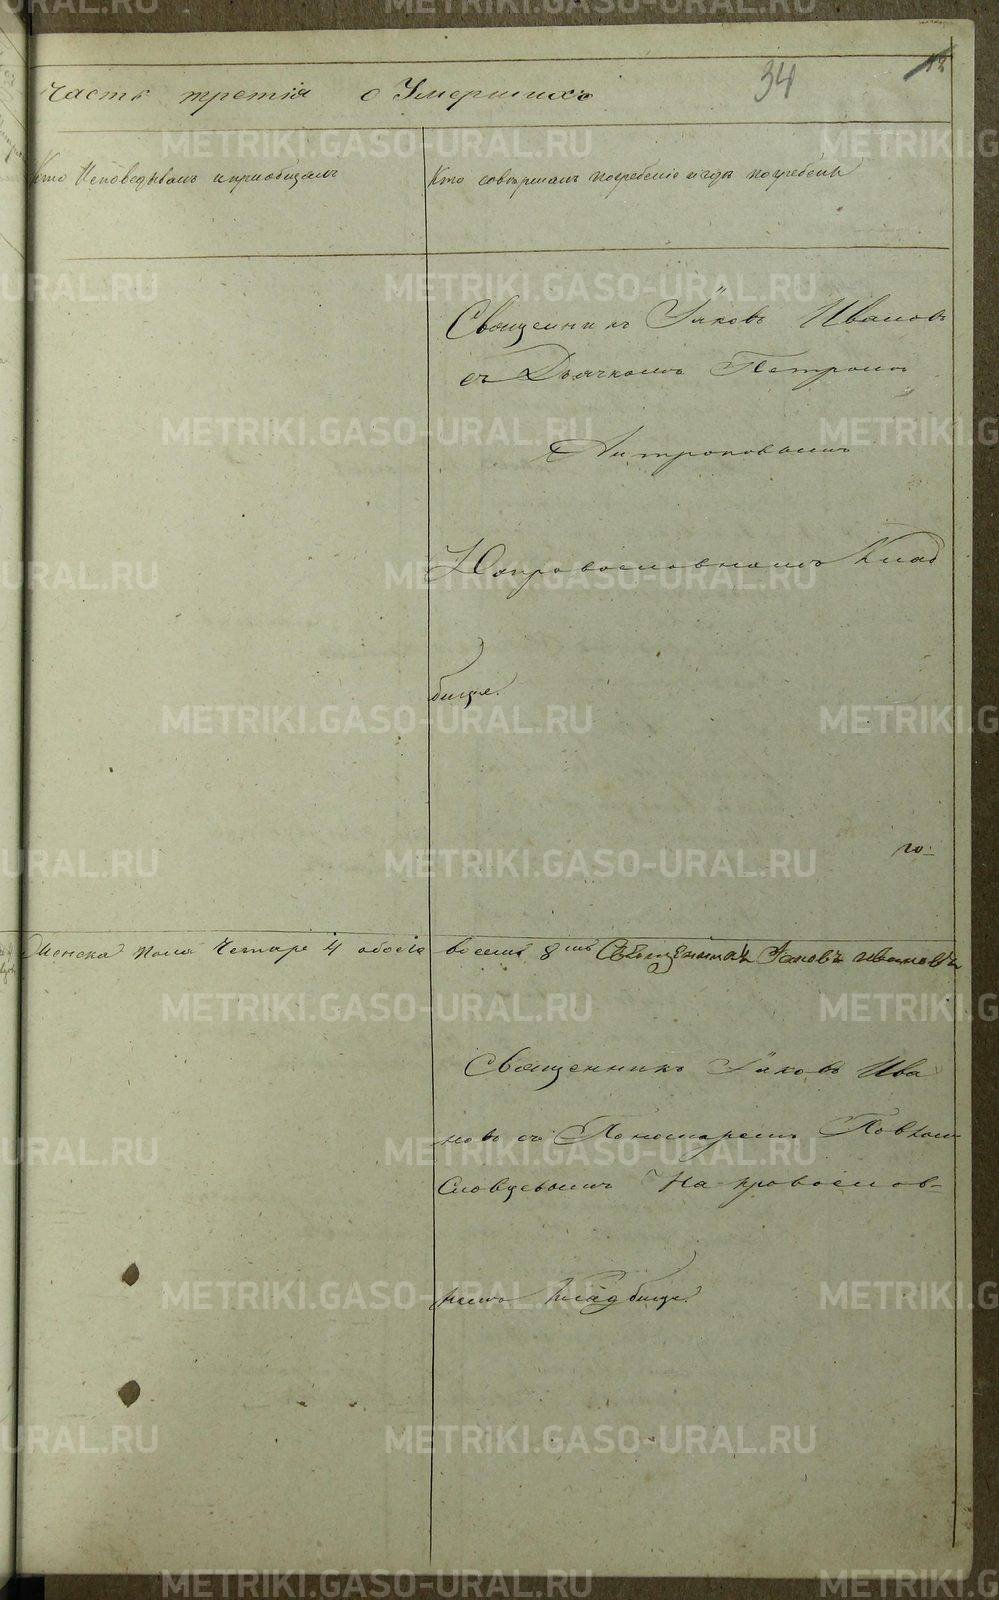 Часть третія о Умершихъ
34
12
Кто Исповедывалъ и приобщалъ
Кто совершалъ погребеніе и гдѣ погребены
Священникъ Іаковъ Ивановъ
съ Дьячкомъ Петромъ
Антроповымъ
На православномъ Клад
бище.
го.
Женска пола Четыре 4 обоего
восемь 8мь Священникъ Іаковъ Ивановъ
Священникъ Іаковъ Ива
новъ съ Пономаремъ Павломъ
Словцовымъ На православ-
номъ кладбище.
METRIKI.GASO-URAL.RU